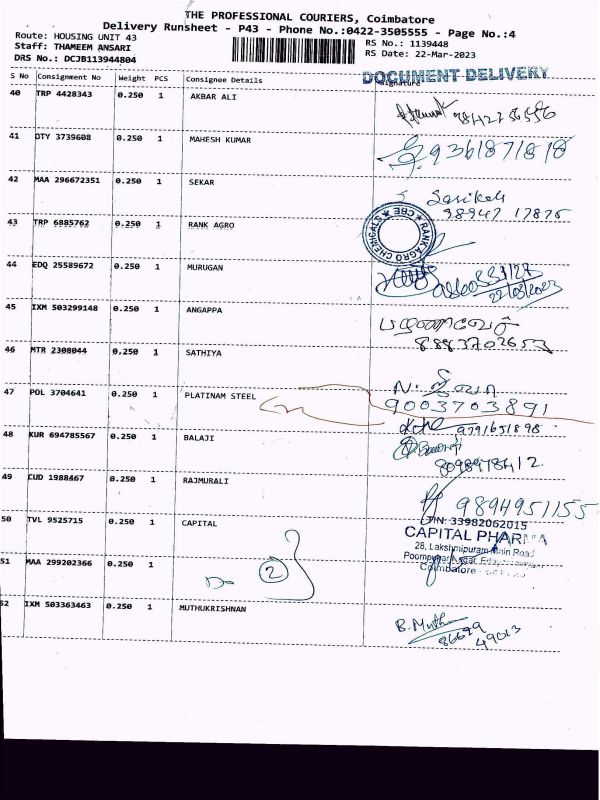 THE PROFESSIONAL COURIERS, Coimbatore
Delivery Runsheet - P43 - Phone No.:0422-3505555 - Page No.:4
Route: HOUSING UNIT 43
Staff: THAMEEM ANSARI
DRS No.: DCJB113944804
RS No.: 1139448
RS Date: 22-Mar-2023
DOCUMENT DELIVERY
S No Consignment No Weight PCS Consignee Details Signature
40 TRP 4428343 0.250 1 AKBAR ALI
41 DTY 3739608 0.250 1 MAHESH KUMAR 9361871818
42 MAA 296672351 0.250 1 SEKAR Sasikala
98947 17875
43 TRP 6885762 0.250 1 RANK AGRO RANK AGRO CHEMICALS ★ CBE ★
44 EDQ 25589672 0.250 1 MURUGAN
22/03/2023
45 IXM 503299148 0.250 1 ANGAPPA
8883702653
46 MTR 2308044 0.250 1 SATHIYA
47 POL 3704641 0.250 1 PLATINAM STEEL 9003703891
9791651898
48 KUR 694785567 0.250 1 BALAJI
8098978412
49 CUD 1988467 0.250 1 RAJMURALI 9894951155
50 TVL 9525715 0.250 1 CAPITAL TIN: 33982062015
CAPITAL PHARMA
28, Lakshmipuram Main Road
Poompuhar Nagar,
Coimbatore
51 MAA 299202366 0.250 1 2
52 IXM 503363463 0.250 1 MUTHUKRISHNAN B. Muthu
86699
49013